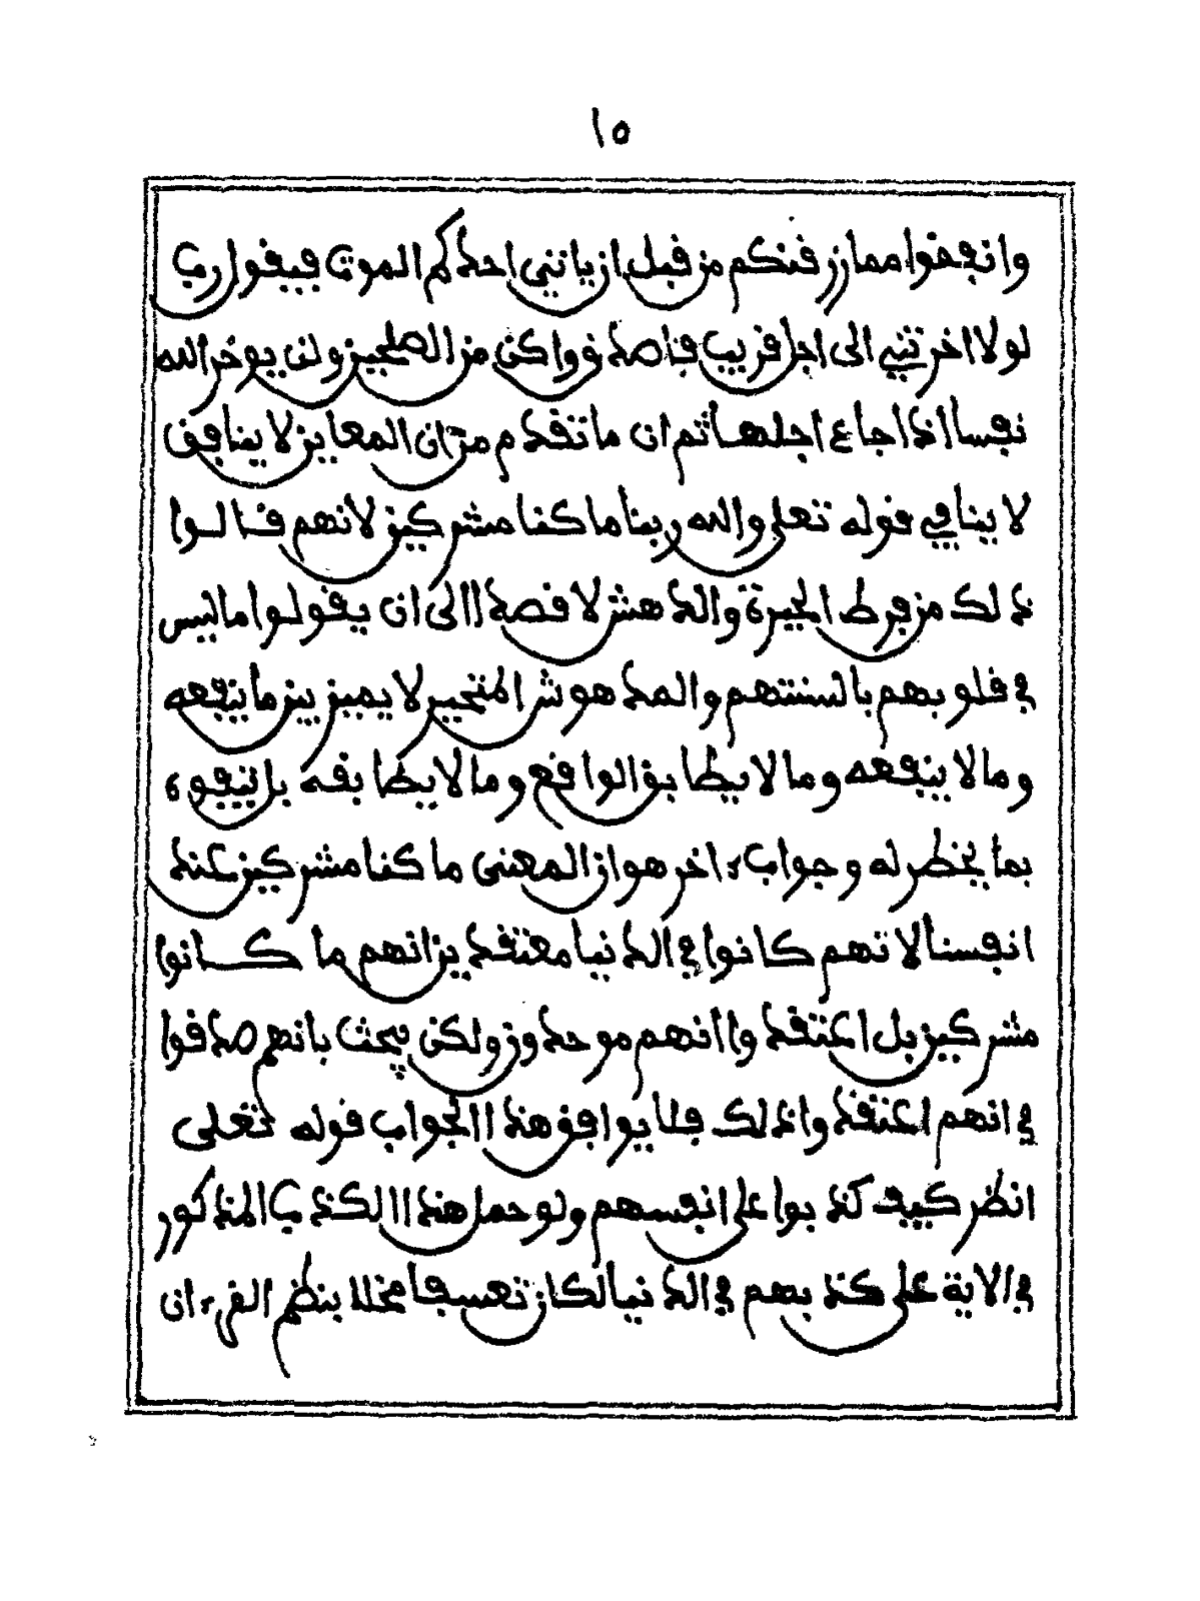 ١٥
وانفقوا مما رزقنكم من قبل ان ياتي احدكم الموت فيقول رب
لولا اخرتني الى اجل قريب فاصدق واكن من الصلحين ولن يوخر الله
نفسا اذا جاء اجلها ثم ان ما تقدم من ان المعاين لا ينافق
لا ينافي قوله تعلى والله ربنا ما كنا مشركين لانهم قالوا
ذلك من فرط الحيرة والدهش لا قصدا الى ان يقولوا ما ليس
في قلوبهم بالسنتهم والمدهوش المتحير لا يميز بين ما ينفعه
وما لا ينفعه وما لا يطابق الواقع وما لا يطابقه بل يتفوه
بما يخطر له وجواب ءاخر هو ان المعنى ما كنا مشركين عند
انفسنا لانهم كانوا في الدنيا معتقدين انهم ما كانوا
مشركين بل اعتقدوا انهم موحدون ولكن يبحث بانهم صدقوا
في انهم اعتقدوا ذلك فلا يوافق هذا الجواب قوله تعلى
انظر كيف كذبوا على انفسهم ولو حمل هذا الكذب المذكور
في الاية على كذبهم في الدنيا لكان تعسفا مخلا بنظم القرءان